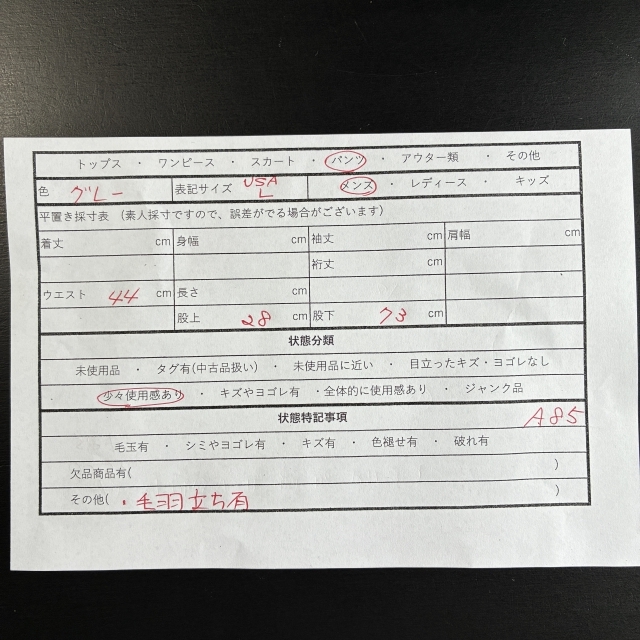 トップス ・ ワンピース ・ スカート ・ パンツ ・ アウター類 ・ その他
色 グレー 表記サイズ USA L メンズ ・ レディース ・ キッズ
平置き採寸表 (素人採寸ですので、誤差がでる場合がございます)
着丈 cm 身幅 cm 袖丈 cm 肩幅 cm
裄丈 cm
ウエスト 44 cm 長さ cm
股上 28 cm 股下 73 cm
状態分類
未使用品 ・ タグ有(中古品扱い) ・ 未使用品に近い ・ 目立ったキズ・ヨゴレなし
少々使用感あり ・ キズやヨゴレ有 ・全体的に使用感あり ・ ジャンク品
状態特記事項 A85
毛玉有 ・ シミやヨゴレ有 ・ キズ有 ・ 色褪せ有 ・ 破れ有
欠品商品有( )
その他( ・毛羽立ち有 )